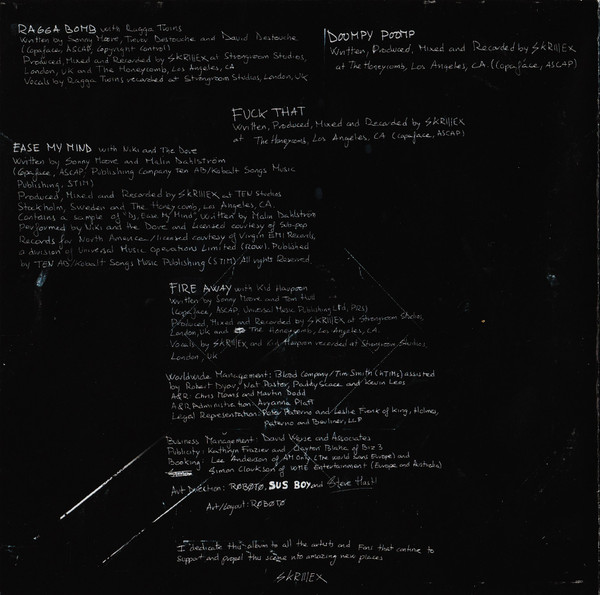 RAGGA BOMB with Ragga Twins
Written by Sonny Moore, Trevor Destouche and David Destouche
(Copaface, ASCAP, Copyright Control)
Produced, Mixed and Recorded by SKRillEX at Strongroom Studios,
London, UK and The Honeycomb, Los Angeles, CA
Vocals by Ragga Twins recorded at Strongroom Studios, London, UK
DOOMPY POOMP
Written, Produced, Mixed and Recorded by SKRillEX
at The Honeycomb, Los Angeles, CA. (Copaface, ASCAP)
FUCK THAT
Written, Produced, Mixed and Recorded by SKRillEX
at The Honeycomb, Los Angeles, CA (Copaface, ASCAP)
EASE MY MIND with Niki and The Dove
Written by Sonny Moore and Malin Dahlström
(Copaface, ASCAP, Publishing Company Ten AB/Kobalt Songs Music
Publishing, STIM)
Produced, Mixed and Recorded by SKRillEX at TEN Studios
Stockholm, Sweden and The Honeycomb, Los Angeles, CA.
Contains a sample of "Dj, Ease My Mind", written by Malin Dahlström
Performed by Niki and the Dove and Licensed courtesy of Sub-pop
Records for North America / licensed courtesy of Virgin EMI Records,
a division of Universal Music Operations Limited (ROW). Published
by TEN AB/Kobalt Songs Music Publishing (STIM)/All rights Reserved
FIRE AWAY with Kid Harpoon
Written by Sonny Moore and Tom Hull
(Copaface, ASCAP, Universal Music Publishing Ltd, PRS)
Produced, Mixed and Recorded by SKRillEX at Strongroom Studios
London, UK and The Honeycomb, Los Angeles, CA.
Vocals by SKRillEX and Kid Harpoon recorded at Strongroom Studios,
London, UK
Worldwide Management: Blood Company/Tim Smith (@TIMS) assisted
by Robert Dyar, Nat Pastor, Paddy Scace and Kevin Lens
A&R: Chris Morris and Martin Dodd
A&R Administration: Aryanna Platt
Legal Representation: Peter Paterno and Leslie Frank of King, Holmes,
Paterno and Berliner, LLP
Business Management: David Weise and Associates
Publicity: Kathryn Frazier and Clayton Blaha of Biz 3
Booking: Lee Anderson of AM Only (The world sans Europe) and
Simon Clarkson of WME Entertainment (Europe and Australia)
Art Direction: ROBØTO, SUS BOY, and Steve Hash!
Art/Layout: ROBØTO
I dedicate this album to all the artists and fans that continue to
support and propel this scene into amazing new places
SKRillEX